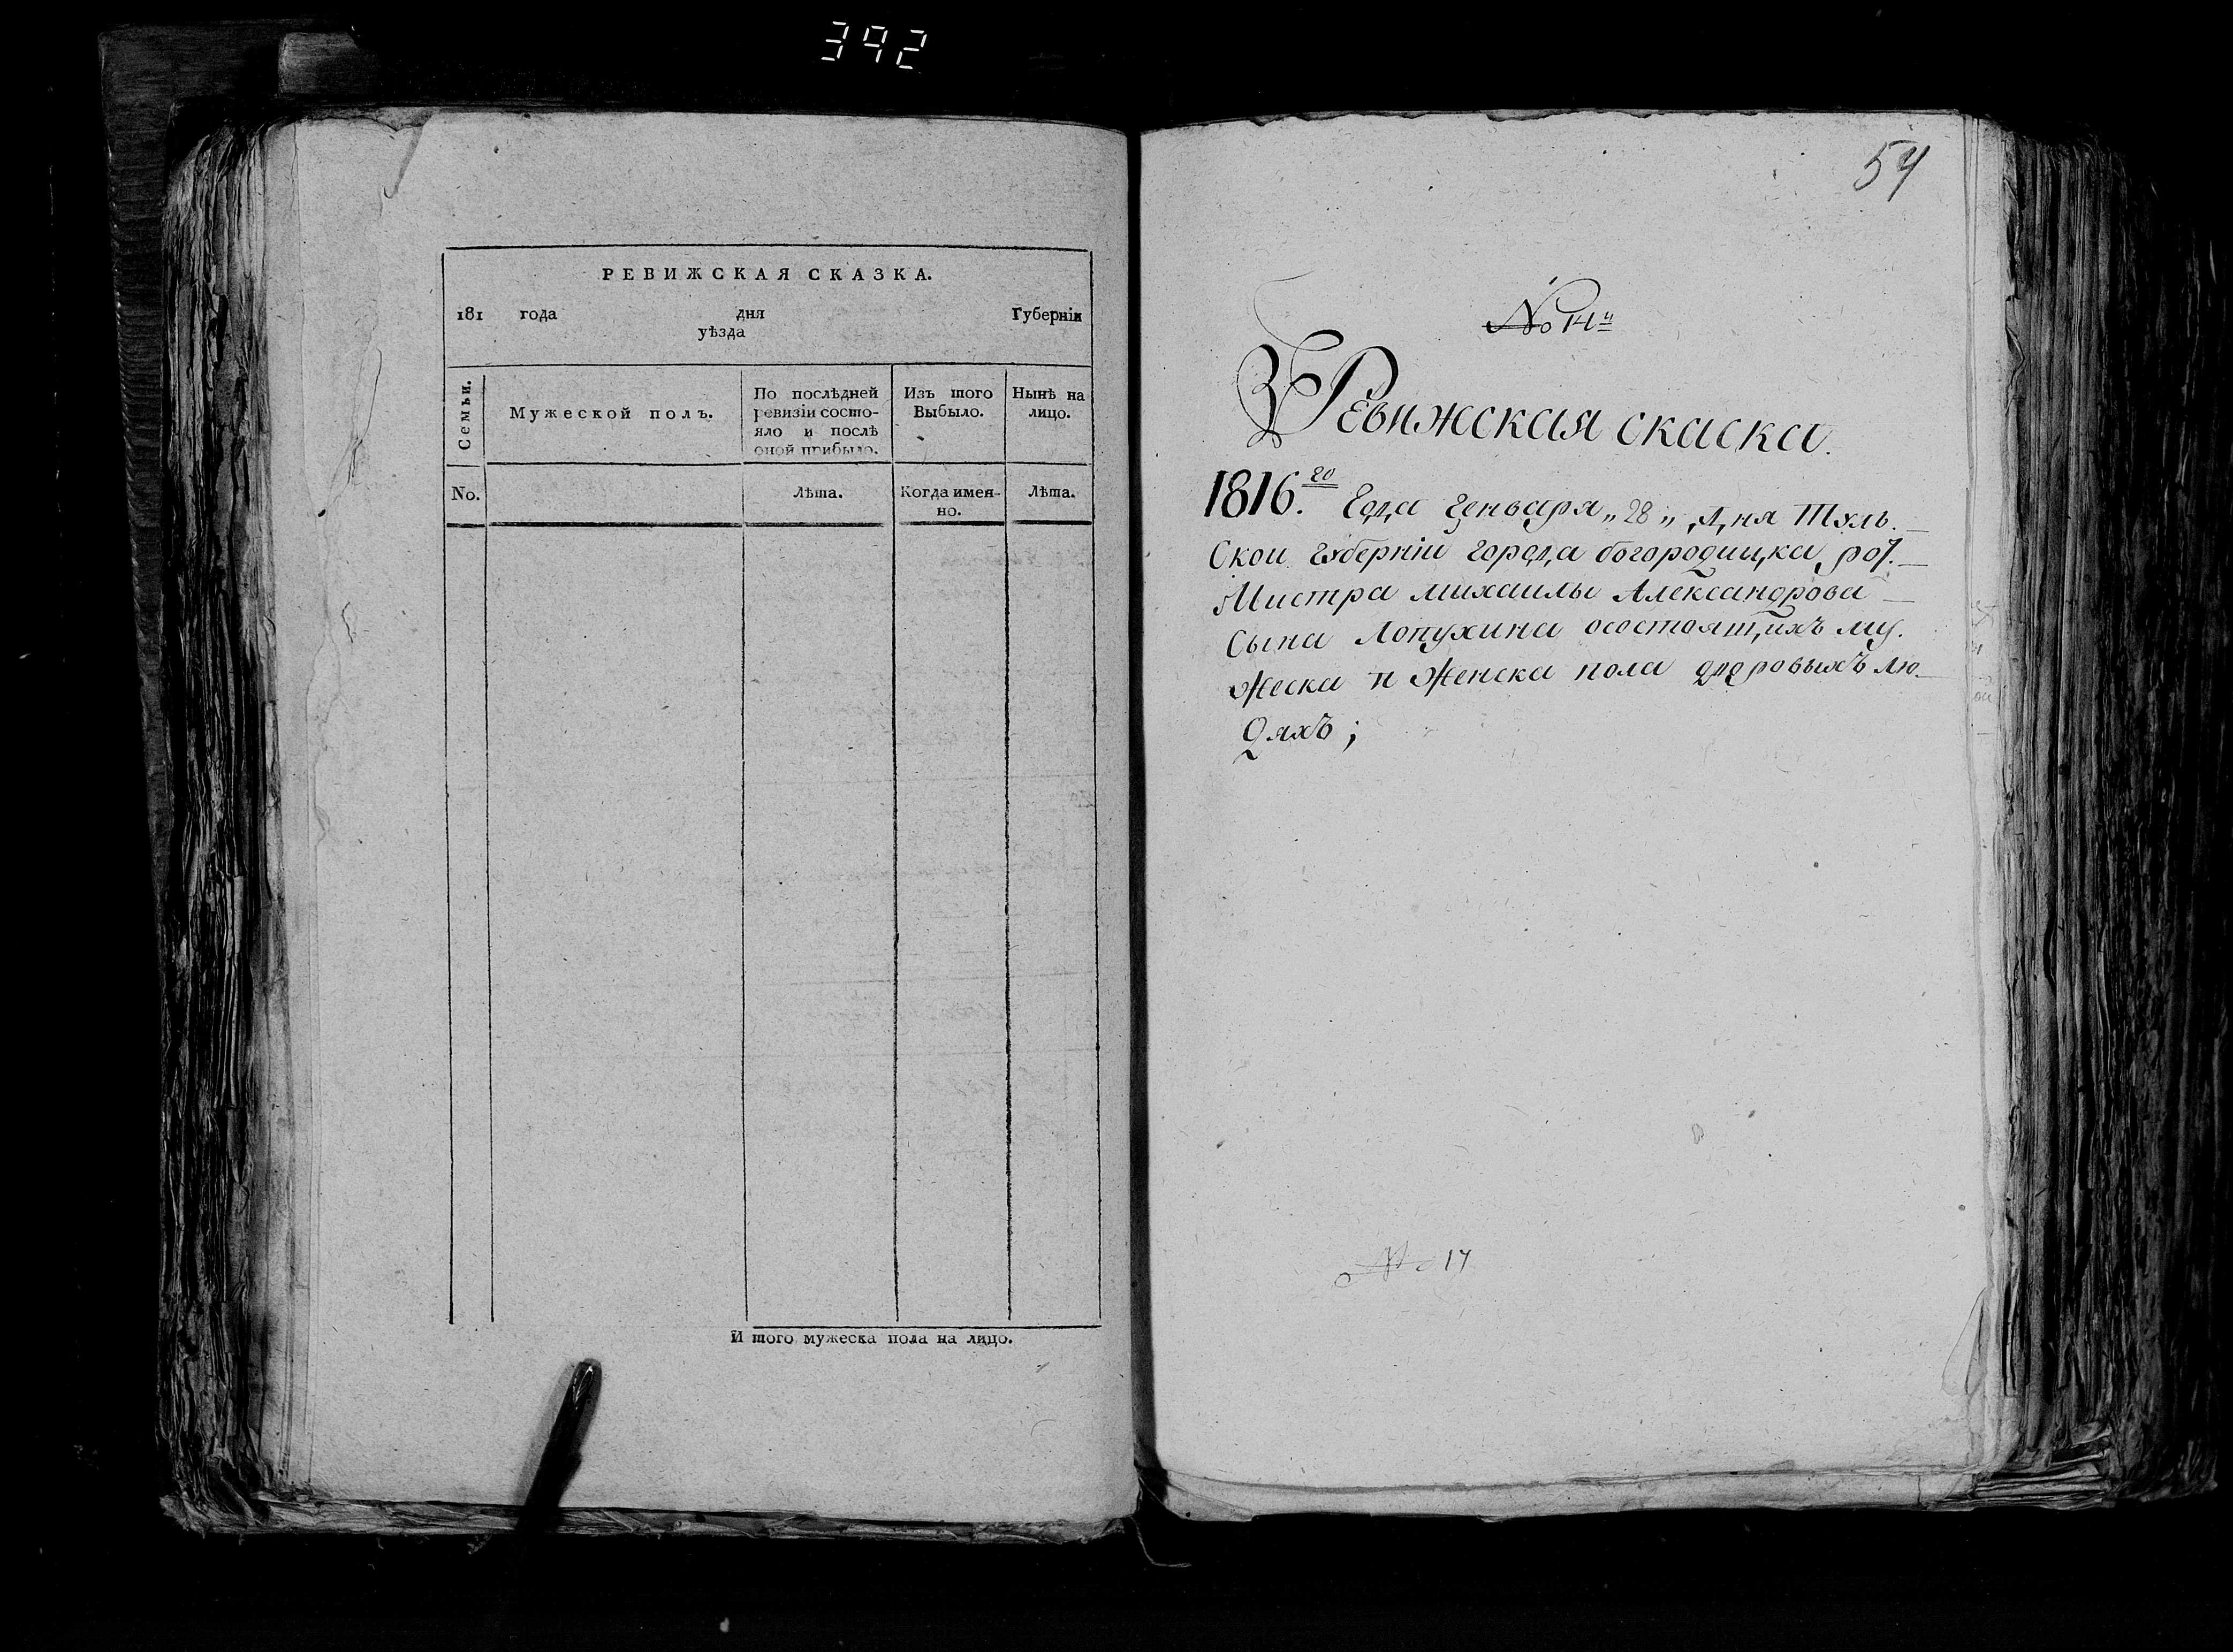 392
РЕВИЖСКАЯ СКАЗКА.
181 года дня Губерніи
уѣзда
Семьи.
Мужеской полъ.
По послѣдней
ревизіи состо-
яло и послѣ
оной прибыло.
Изъ того
Выбыло.
Нынѣ на
лицо.
No.
Лѣта.
Когда имен-
но.
Лѣта.
И того мужеска пола на лицо.
54
No 14й
Ревижская скаска.
1816.го Года Генваря „28„ дня Туль.
Скои губерніи города богородицка рот.
Мистра михаилы Александрова
Сына Лопухина осостоящихъ му.
жеска и женска пола дворовыхъ лю
дяхъ;
No 14